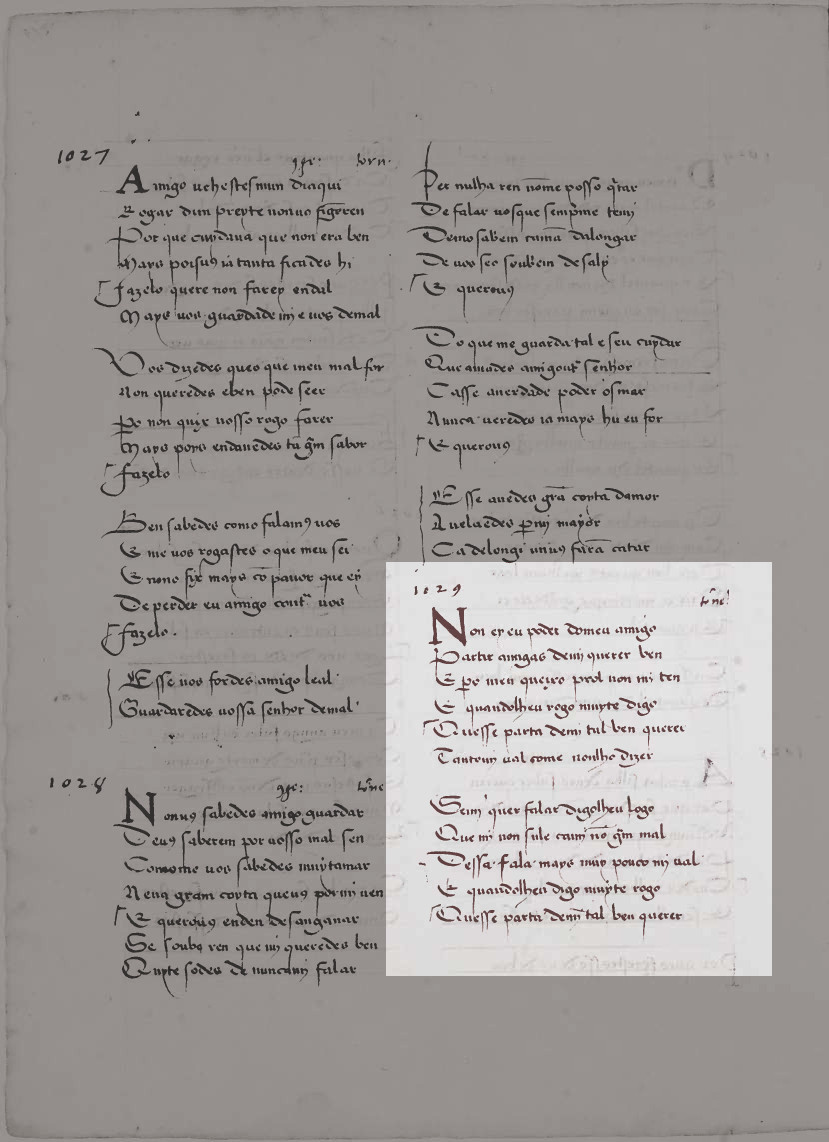 1027
torn.
Amigo uehestesmun diaqui
Rogar dun preyte nonuo figeren
Por que cuydaua que non era ben
Mays poisus ia tanta ficades hi
Fazelo quere non farey endal
Mays uos guardade mi e uos demal
Vos dizedes queo que meu mal for
Non queredes eben pode seer
Pero non quix uosso rogo fazer
Mays poys endauedes tã gm sabor
Fazelo
Ben sabedes como falamus uos
E me uos rogastes o que meu sei
E nono fix mays cõ pauor que ey
De perder eu amigo contra uos
Fazelo.
Esse uos fordes amigo leal
Guardaredes uossa senhor demal
1028
torne
Nonus sabedes amigo guardar
Deus saberem por uosso mal sen
Comome uos sabedes muytamar
Nena gram coyta queus por mi uen
E querous enden desanganar
Se souber ren que mi queredes ben
Quyte sodes de nuncami falar
Per nulha ren nõme posso qitar
De falar uosque sempre temi
Demosabem camã dalongar
De uos seo souberem desaly
E querous
Do que me guarda tal e seu cuydar
Que amades amigout senhor
Casse auerdade poder osmar
Nunca ueredes ia mays hu eu for
E querous
Esse auedes gra coyta damor
Auelaedes per mi mayor
Cadelongi mius fara catar
1029
torne
Non ey eu poder domeu amigo
Partir amigas demi querer ben
E pero meu queixo prol non mi ten
E quandolheu rogo muyte digo
Quesse parta demi tal ben querer
Tantomi ual come nonlho dizer
Semi quer falar digolheu logo
Que mi non fale cami nõ gm mal
Dessa fala mays muy pouco mi ual
E quandolheu digo muyte rogo
Quesse parta demi tal ben querer